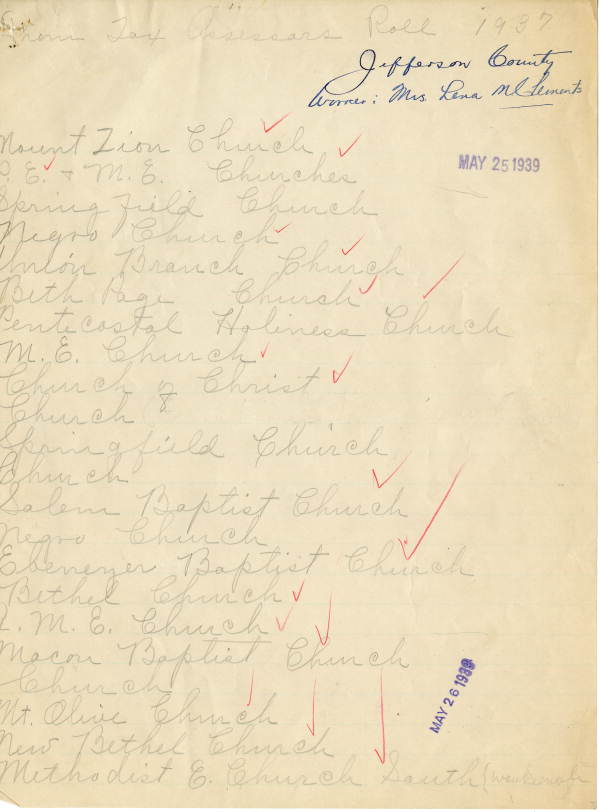 From Tax Assessors Roll 1937
Jefferson County
Worker: Mrs. Lena McClements
MAY 25 1939
Mount Zion Church
E. & M.E. Churches
Springfield Church
Negro Church
Union Branch Church
Beth Page Church
Pentecostal Holiness Church
M.E. Church
Church of Christ
Church
Springfield Church
Church
Salem Baptist Church
Negro Church
Ebenezer Baptist Church
Bethel Church
M. E. Church
Macon Baptist Church
Church
Mt. Olive Church
New Bethel Church
Methodist E. Church South
MAY 26 1939